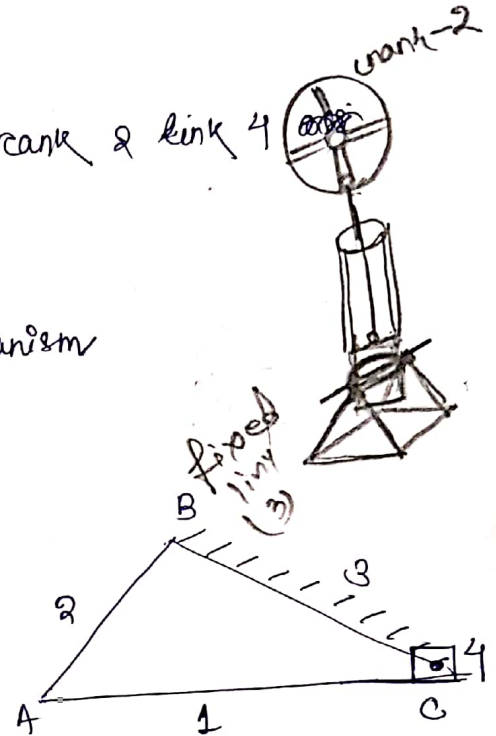 crank-2
cank & link 4
anism
fixed
link
(3)
B
3
2
4
A
1
C